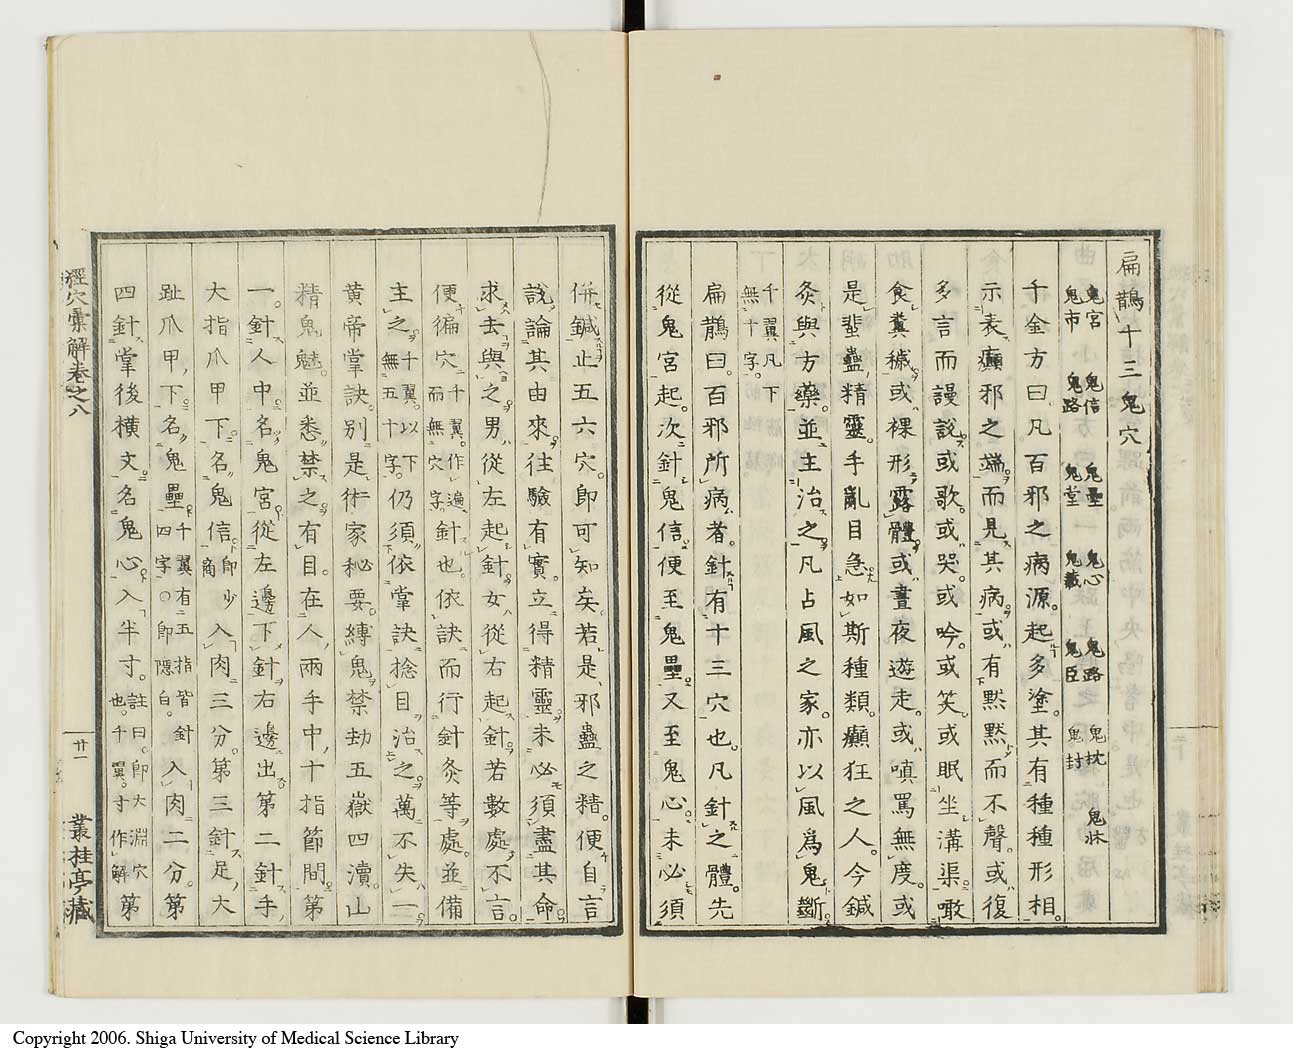 扁鵲十三鬼穴
鬼宮 鬼信 鬼壘 鬼心 鬼路 鬼枕 鬼牀
鬼市 鬼路 鬼堂 鬼藏 鬼臣 鬼封
千金方曰凡百邪之病源起多塗其有種種形相
示表癲邪之端而見其病或有默默而不聲或復
多言而謾說或歌或哭或吟或笑或眠坐溝渠噉
食糞穢或裸形露體或晝夜遊走或嗔罵無度或
是蜚蠱精靈手亂目急如斯種類癲狂之人今鍼
灸與方藥並主治之凡占風之家亦以風爲鬼斷
千翼凡下
無十字
扁鵲曰百邪所病者針有十三穴也凡針之體先
從鬼宮起次針鬼信便至鬼壘又至鬼心未必須
併鍼止五六穴即可知矣若是邪蠱之精便自言
說論其由來往驗有實立得精靈未必須盡其命
求去與之男從左起針女從右起針若數處不言
便徧穴千翼作遍而無穴字針也依訣而行針灸等處並備
主之千翼以下無五十字仍須依掌訣捻目治之萬不失一
黃帝掌訣別是術家秘要縛鬼禁劫五嶽四瀆山
精鬼魅並悉禁之有目在人兩手中十指節間第
一針人中名鬼宮從左邊下針右邊出第二針手
大指爪甲下名鬼信即少商入肉三分第三針足大
趾爪甲下名鬼壘千翼有五指皆針四字○即隱白入肉二分第
四針掌後橫文名鬼心入半寸註曰即大淵穴也千翼寸作解第
經穴彙解卷之八
廿一
叢桂亭藏
Copyright 2006. Shiga University of Medical Science Library